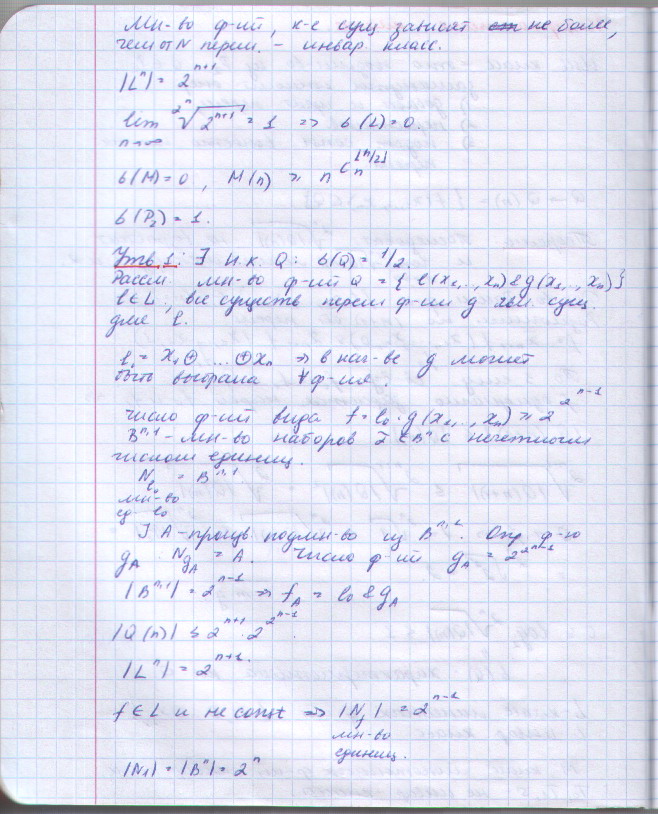 Мн-во ф-ий, к-е сущ зависят не более,
чем от N перем. – инвар. класс.
|Lⁿ| = 2ⁿ⁺¹
lim_{n→∞} \sqrt[2^n]{2^{n+1}} = 1 => σ(L)=0.
σ(M)=0, M(n) ≥ n^{C_n^{[n/2]}}
σ(P₂)=1.
Утв 1: ∃ и.к. Q: σ(Q) = 1/2.
Рассм. мн-во ф-ий Q = { l(x₁,..,xₙ) & g(x₁,..,xₙ)}
l∈L, все существ перем ф-ии g явл сущ.
для l.
l₀ = x₁⊕ ... ⊕xₙ => в кач-ве g может
быть выбрана ∀ ф-ия.
число ф-ий вида f = l₀·g(x₁,..,xₙ) ≥ 2^{2^{n-1}}
B^{n,1} – мн-во наборов α̃ ∈ Bⁿ с нечетным
числом единиц.
N_{l₀} = B^{n,1}
мн-во
ед-в
∃ A – произв подмн-во из B^{n,1}. Опр ф-ю
g_A: N_{g_A} = A. Число ф-ий g_A = 2^{2^{n-1}}
|B^{n,1}| = 2^{n-1} => f_A = l₀ & g_A
|Q(n)| ≤ 2^{n+1} · 2^{2^{n-1}}.
|Lⁿ| = 2^{n+1}.
f∈L и не const => |N_f| = 2^{n-1}
мн-во
единиц.
|N₁| = |Bⁿ| = 2ⁿ